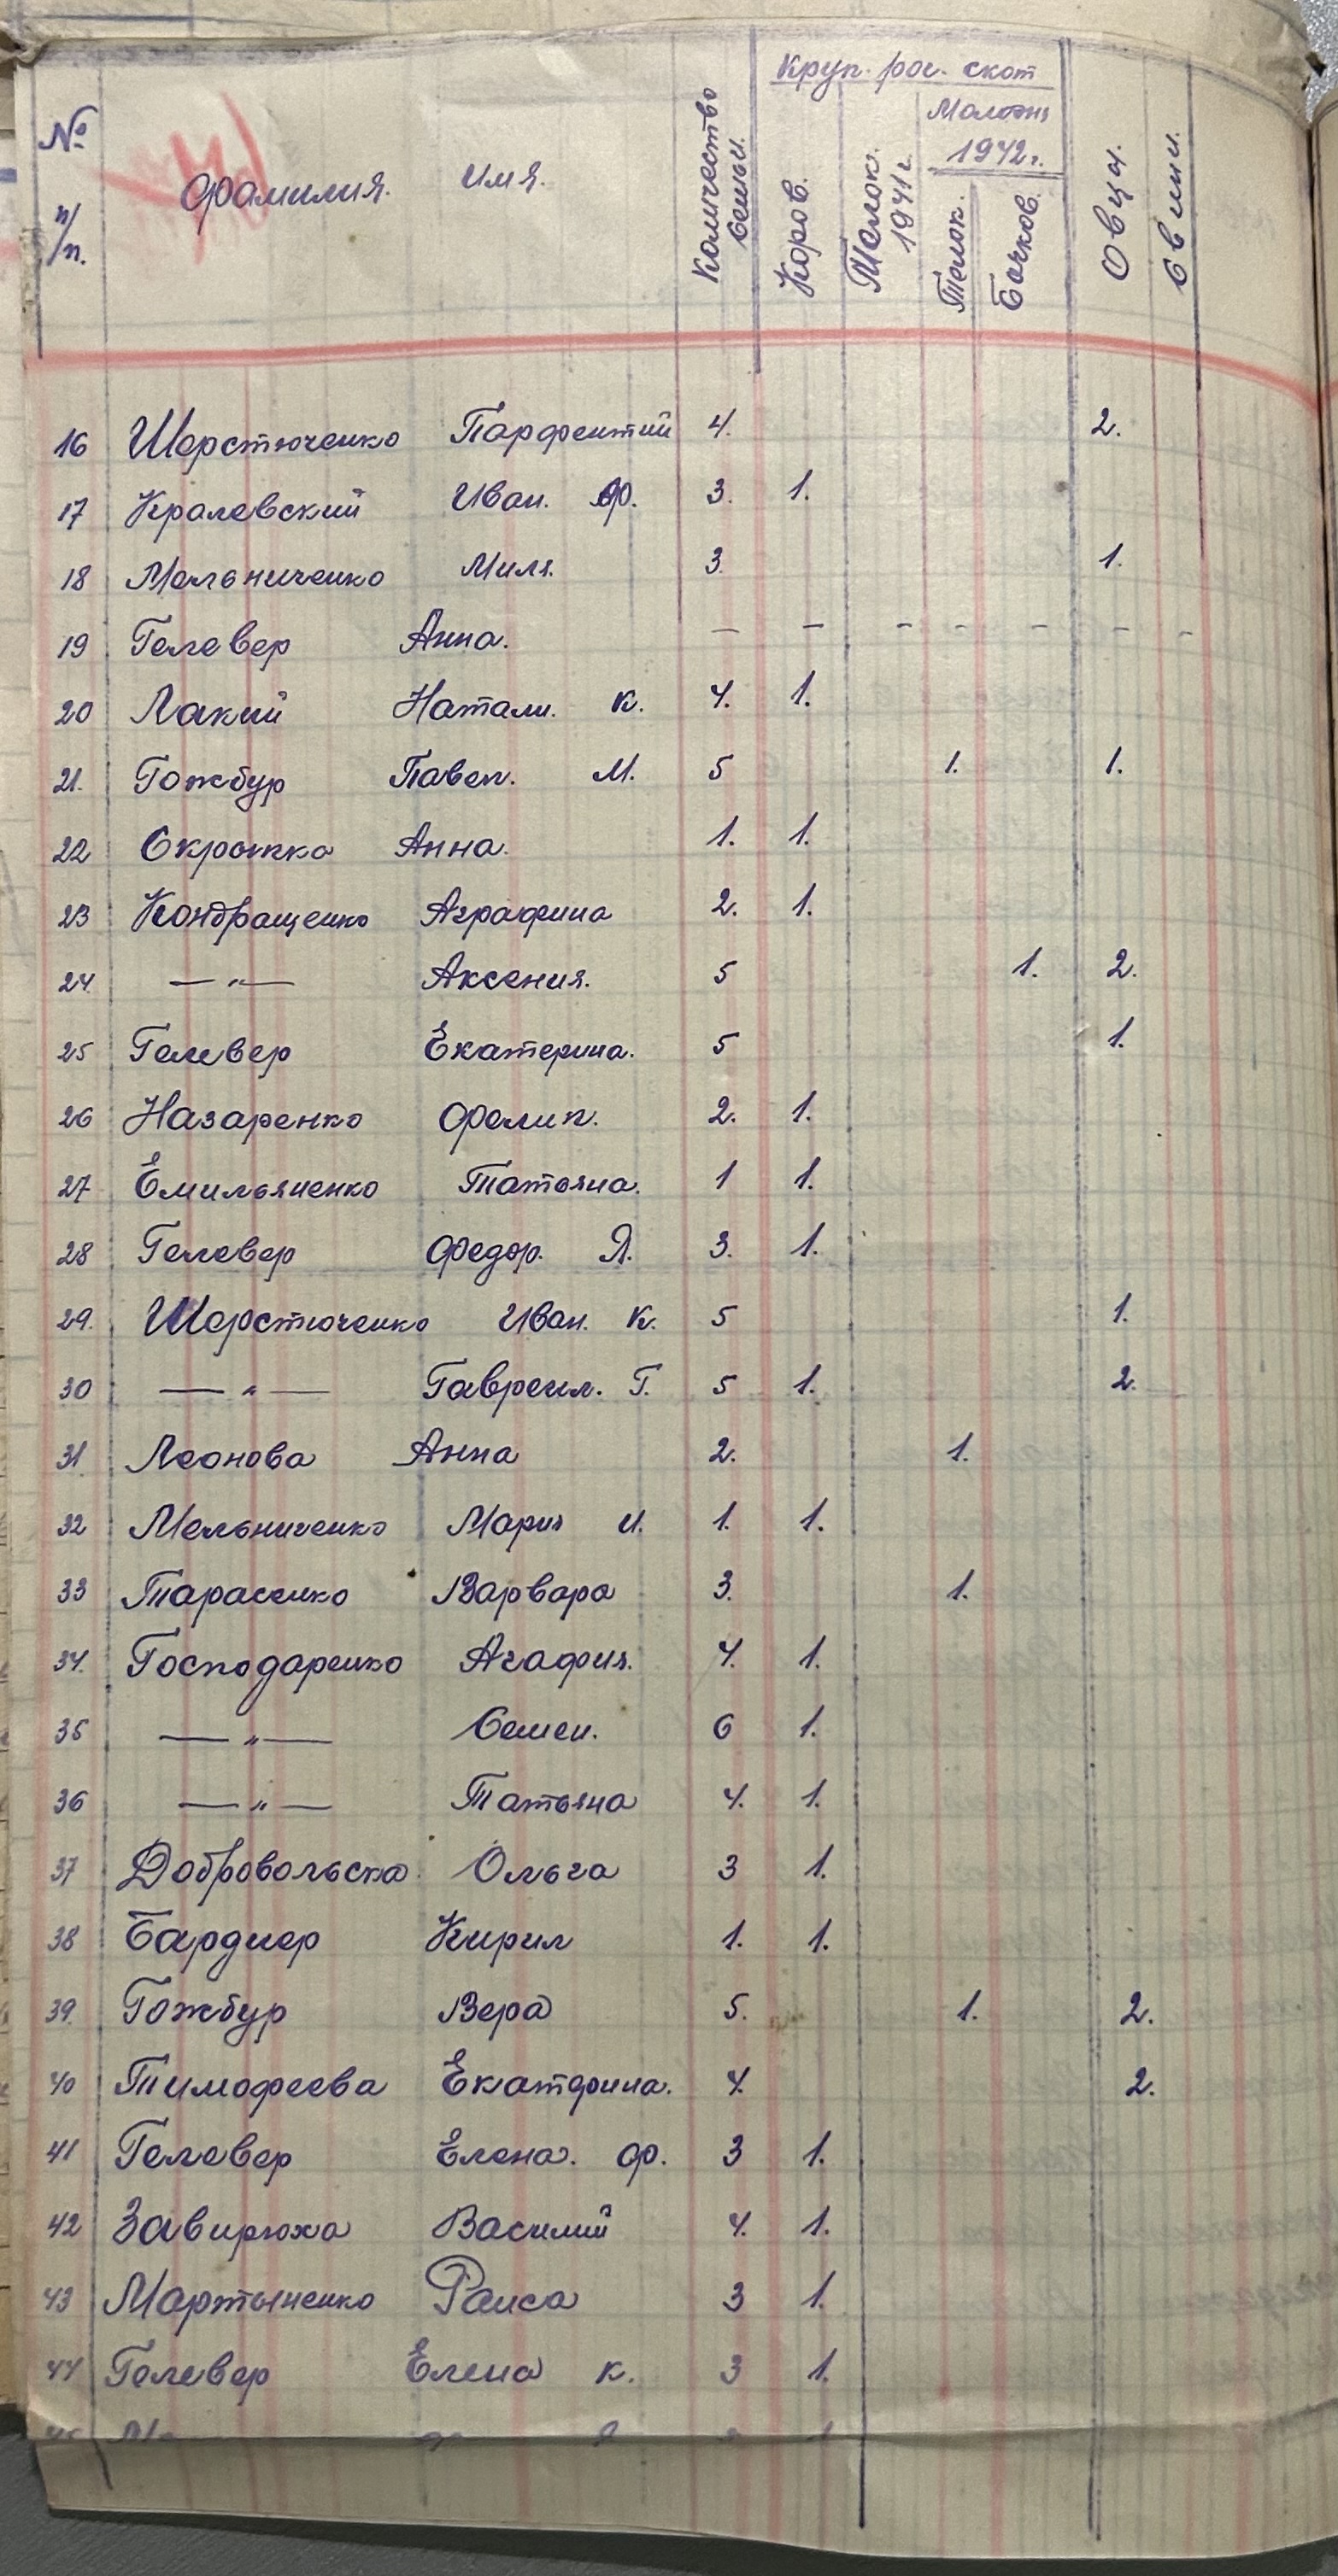 № п/п. Фамилия. Имя. Количество семьи. Круп. рог. скот Коров. Телок. 1941 г. Молодн 1942 г. Телок. Бычков. Овци. Свини.
16 Шерстюченко Парфентий 4. 2.
17 Кралевский Иван. Ф. 3. 1.
18 Мельниченко Миля. 3. 1.
19 Гелевер Анна. — — — — — — —
20 Лакий Натали. К. 4. 1.
21. Гожбур Павел. М. 5 1. 1.
22 Скрыпка Анна. 1. 1.
23 Кондращенко Аграфина 2. 1.
24. — „ — Аксения. 5 1. 2.
25 Гелевер Екатерина. 5 1.
26 Назаренко Фелип. 2. 1.
27 Емильяненко Татьяна. 1 1.
28 Гелевер Федор. Я. 3. 1.
29. Шерстюченко Иван. К. 5 1.
30 — „ — Гавреил. Г. 5 1. 2.
31. Леонова Анна 2. 1.
32 Мельниченко Мария И. 1. 1.
33 Тарасенко Варвара 3. 1.
34. Господаренко Агафия. 4. 1.
35 — „ — Семен. 6 1.
36 — „ — Татьяна 4. 1.
37 Добровольска Ольга 3 1.
38 Бардиер Кирил 1. 1.
39. Гожбур Вера 5. 1. 2.
40 Тимофеева Екатерина. 4. 2.
41 Гелевер Елена. Ф. 3 1.
42 Завирюха Василий 4. 1.
43 Мартыненко Раиса 3 1.
44 Гелевер Елена К. 3 1.